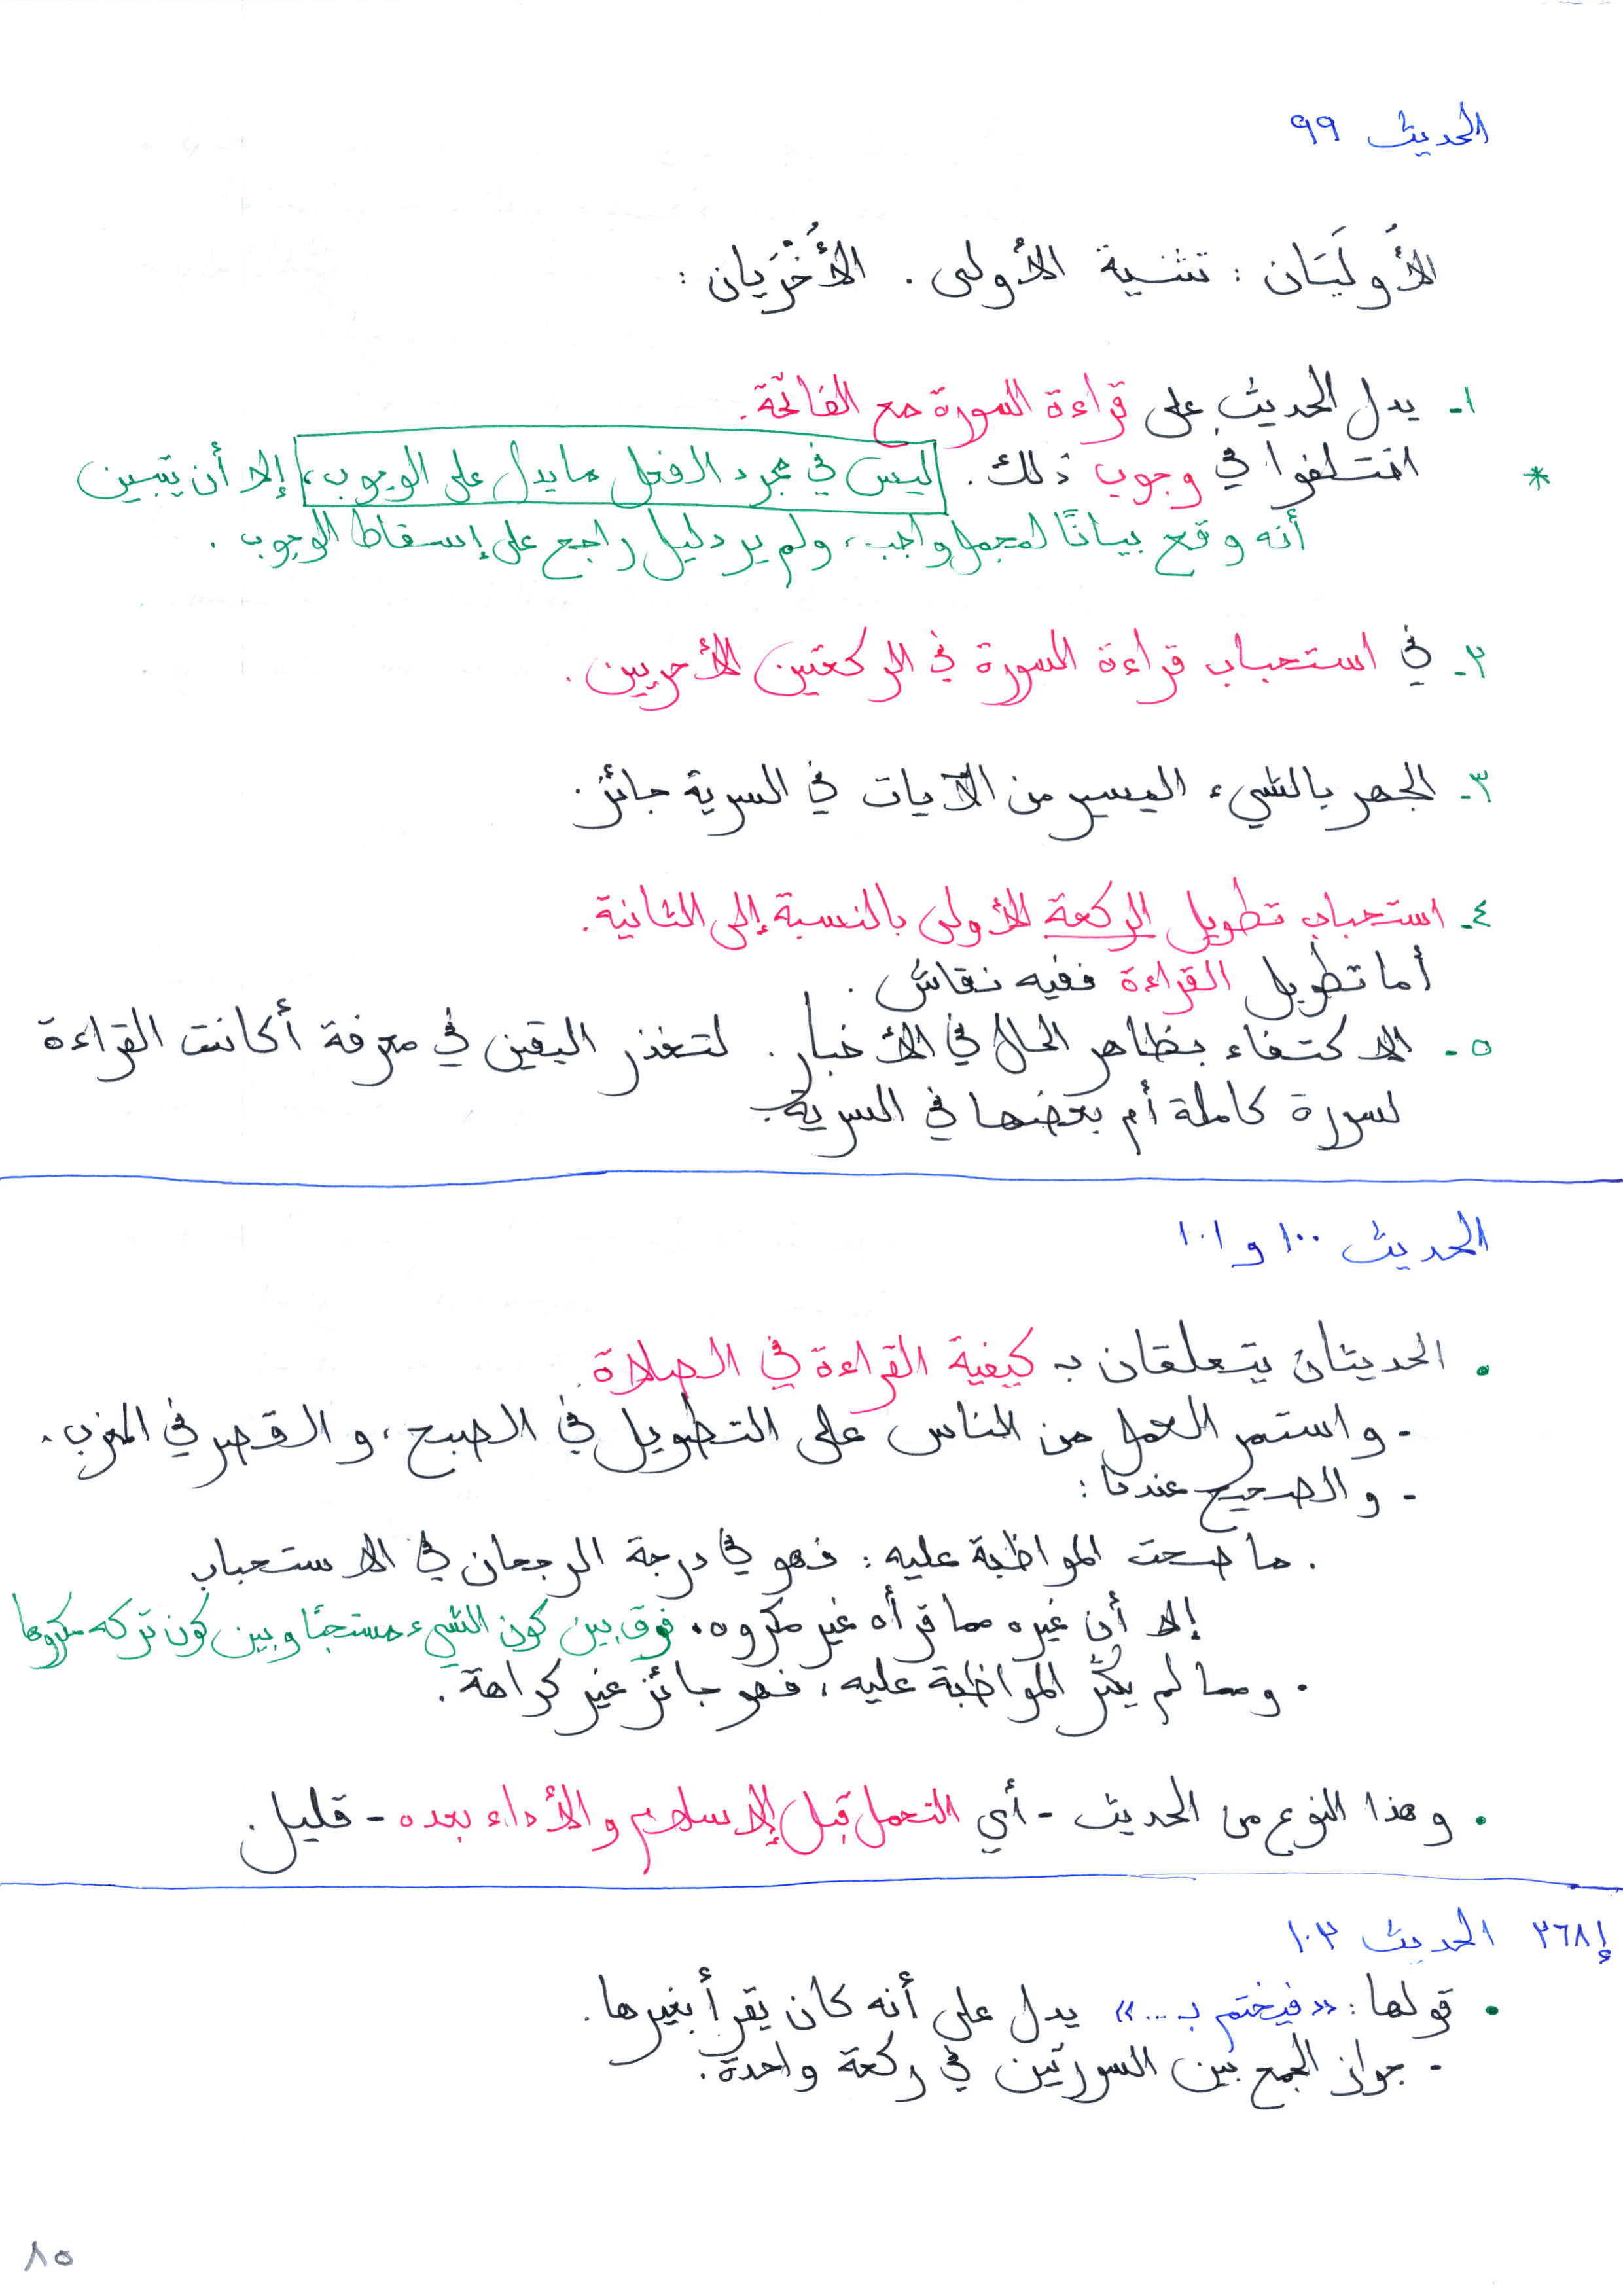 الحديث ٩٩
الأُولَيَان : تثنية الأولى . الأُخْرَيان :
١- يدل الحديث على قراءة السورة مع الفاتحة .
* اختلفوا في وجوب ذلك . ليس في مجرد الفعل ما يدل على الوجوب ، إلا أن يتبين
أنه وقع بيانًا لمجمل واجب ، ولم يرد دليل راجح على إسقاط الوجوب .
٢- في استحباب قراءة السورة في الركعتين الأخريين .
٣- الجهر بالشيء اليسير من الآيات في السرية جائز .
٤- استحباب تطويل الركعة الأولى بالنسبة إلى الثانية .
أما تطويل القراءة ففيه نقاش .
٥- الاكتفاء بظاهر الحال في الأخبار . لتعذر اليقين في معرفة أكانت القراءة
لسورة كاملة أم بعضها في السرية .
الحديث ١٠٠ و ١٠١
• الحديثان يتعلقان بـ كيفية القراءة في الصلاة .
- واستمر العمل من الناس على التطويل في الصبح ، والقصر في المغرب .
- والصحيح عندنا :
. ما صحت المواظبة عليه : فهو في درجة الرجحان في الاستحباب
إلا أن غيره مما قرأه غير مكروه . فرق بين كون الشيء مستحبًا وبين كون تركه مكروها
. ومما لم يكثر المواظبة عليه ، فهو جائز غير كراهة .
• وهذا النوع من الحديث - أي التحمل قبل الإسلام والأداء بعده - قليل .
إ ٣٦٨ الحديث ١٠٣
• قولها : « فيختم بـ ... » يدل على أنه كان يقرأ بغيرها .
- جواز الجمع بين السورتين في ركعة واحدة .
٨٥